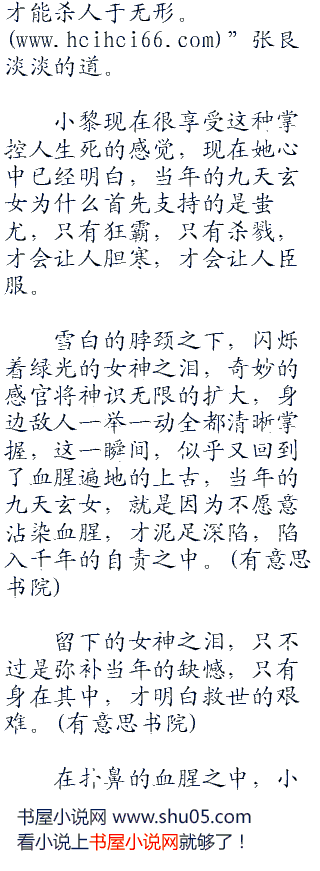 才能杀人于无形。
(www.hcihci66.com)”张良
淡淡的道。
小黎现在很享受这种掌
控人生死的感觉，现在她心
中已经明白，当年的九天玄
女为什么首先支持的是蚩
尤，只有狂霸，只有杀戮，
才会让人胆寒，才会让人臣
服。
雪白的脖颈之下，闪烁
着绿光的女神之泪，奇妙的
感官将神识无限的扩大，身
边敌人一举一动全都清晰掌
握，这一瞬间，似乎又回到
了血腥遍地的上古，当年的
九天玄女，就是因为不愿意
沾染血腥，才泥足深陷，陷
入千年的自责之中。(有意思
书院)
留下的女神之泪，只不
过是弥补当年的缺憾，只有
身在其中，才明白救世的艰
难。(有意思书院)
在扑鼻的血腥之中，小
书屋小说网 www.shu05.com
看小说上书屋小说网就够了！